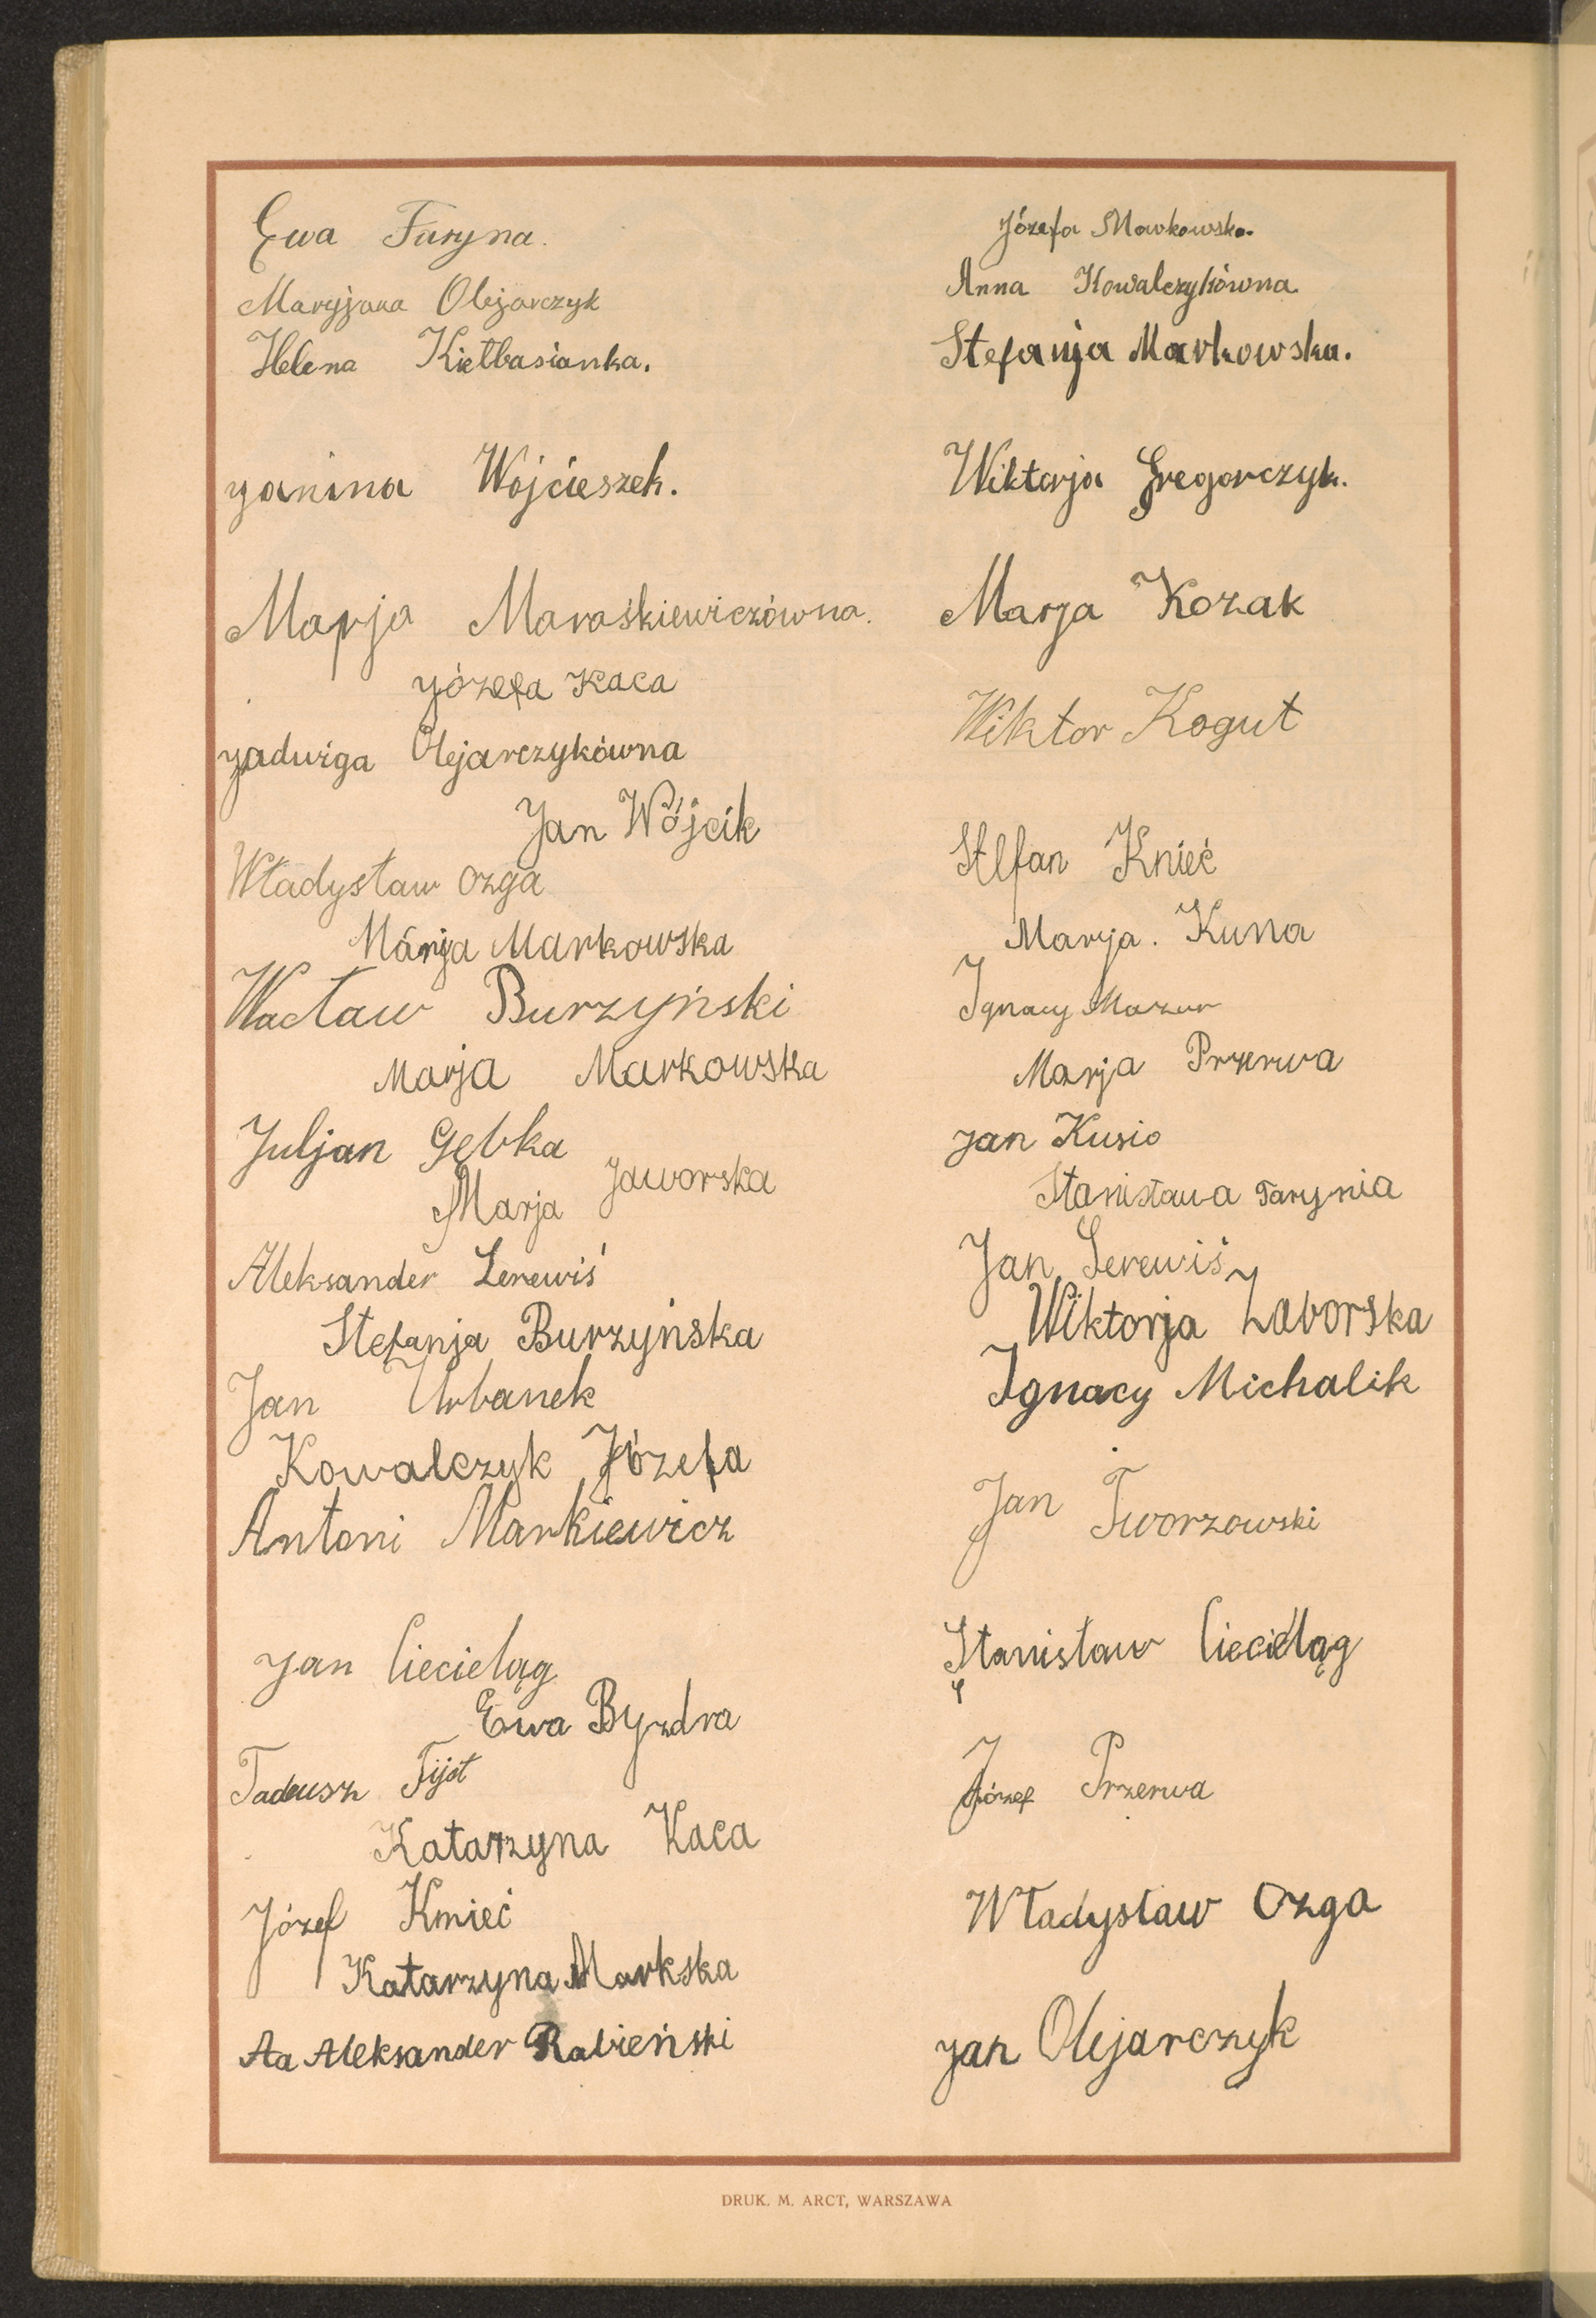 Ewa Furyna.
Maryjana Olejarczyk
Helena Kiełbasianka.
Janina Wójcieszek.
Marja Maraśkiewiczówna.
Józefa Kaca
Jadwiga Olejarczykówna
Jan Wójcik
Władysław Ozga
Marja Markowska
Wacław Burzyński
Marja Markowska
Juljan Gębka
Marja Jaworska
Aleksander Lerewiś
Stefanja Burzyńska
Jan Urbanek
Kowalczyk Józefa
Antoni Markiewicz
Jan Ciecieląg
Ewa Byzdra
Tadeusz Fijoł
Katarzyna Kaca
Józef Kmieć
Katarzyna Markska
Aa Aleksander Rabieński
Józefa Markowska.
Anna Kowalczykówna.
Stefanja Markowska.
Wiktorja Gregorczyk.
Marja Kozak
Wiktor Kogut
Stefan Knieć
Marja. Kuna
Ignacy Mazur
Marja Przerwa
Jan Kusio
Stanisława Farynia
Jan Serewiś
Wiktorja Zaborska
Ignacy Michalik
Jan Tworzowski
Stanisław Ciecieląg
Józef Przerwa
Władysław Ozga
Jan Olejarczyk
DRUK. M. ARCT, WARSZAWA